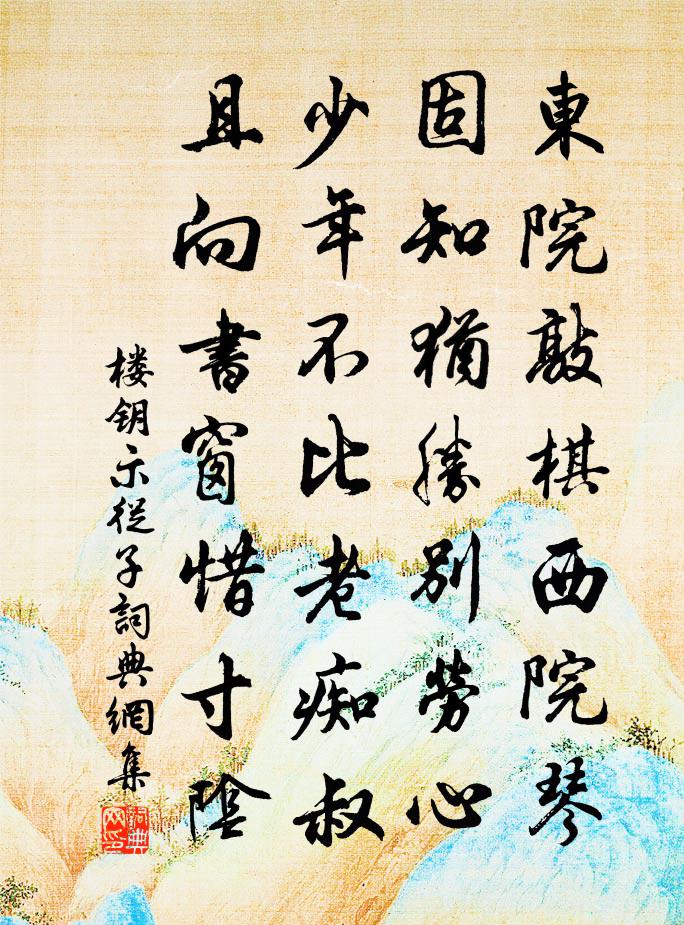 東院敲棋西院琴
固知猶勝別勞心
少年不比老痴叔
且向書窗惜寸陰
楼钥示從子詞典網集
詞典网印